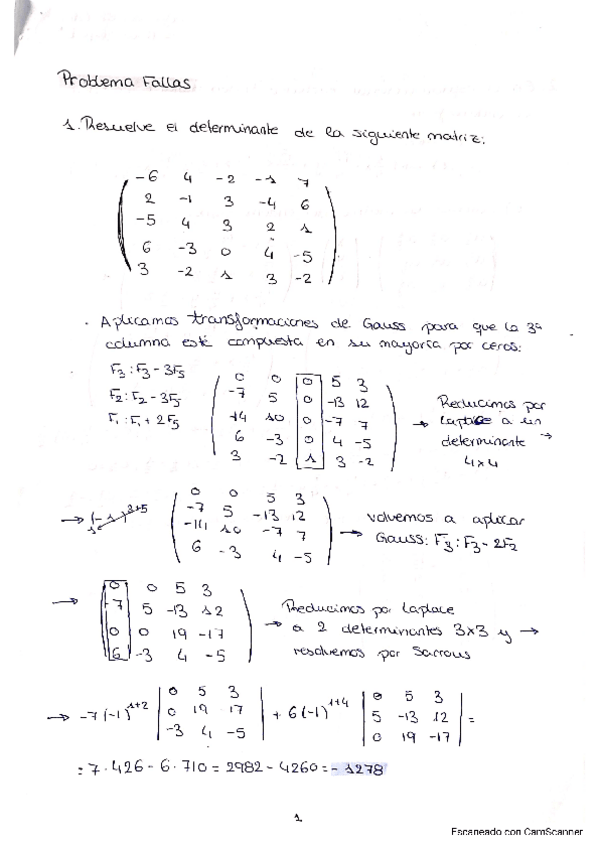 Problema Fallas
1. Resuelve el determinante de la siguiente matriz:
-6 4 -2 -1 7
2 -1 3 -4 6
-5 4 3 2 1
6 -3 0 4 -5
3 -2 1 3 -2
. Aplicamos transformaciones de Gauss para que la 3ª
columna esté compuesta en su mayoría por ceros:
F3: F3 - 3F5
F2: F2 - 3F5
F1: F1 + 2F5
0 0 0 5 3
-7 5 0 -13 12
-14 10 0 -7 7
6 -3 0 4 -5
3 -2 1 3 -2
→ Reducimos por
Laplace a un →
determinante
4x4
→ 1(-1)³⁺⁵
0 0 5 3
-7 5 -13 12
-14 10 -7 7
6 -3 4 -5
→ volvemos a aplicar
Gauss: F3: F3 - 2F2
→
0 0 5 3
-7 5 -13 12
0 0 19 -17
6 -3 4 -5
Reducimos por Laplace
→ a 2 determinantes 3x3 y →
resolvemos por Sarrus
→ -7(-1)¹⁺² | 0 5 3 | + 6(-1)¹⁺⁴ | 0 5 3 | =
| 0 19 17 | | 5 -13 12 |
| -3 4 -5 | | 0 19 -17 |
= 7 · 426 - 6 · 710 = 2982 - 4260 = -1278
1
Escaneado con CamScanner